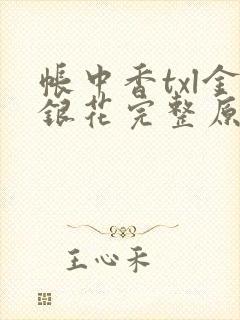 帐中香txl金
银花完整原
王心禾